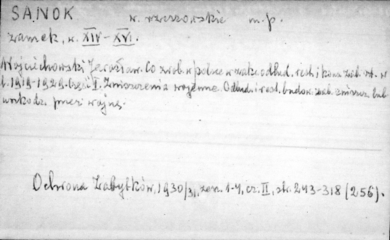 SANOK w. rzeszowskie m.p.
zamek, w. XIV - XVI.
Wojciechowski Jarosław. Co zrob. w Polsce w zakr. odbud. rest. i kons. zab. szt. w
l. 1919-1929. część II. Zniszczenia wojenne. Odbud. i rest. budow. zab. zniszcz. lub
uszkodz. przez wojnę.
Ochrona Zabytków, 1930/31, zesz. 1-4, cz. II, str. 243-318 (256).